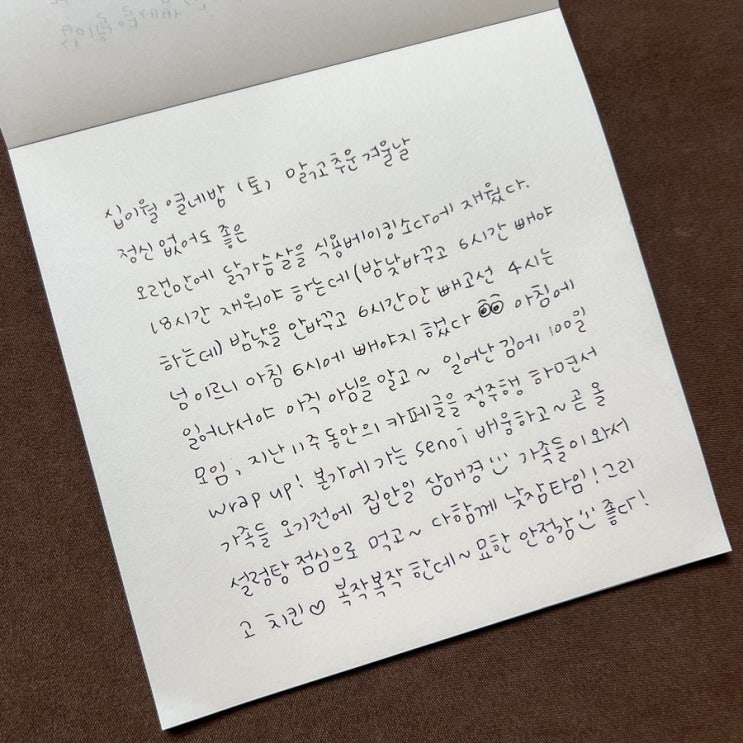 십이월 열네밤 (토) 맑고추운겨울날
정신 없어도 좋은
오랜만에 닭가슴살을 식용베이킹소다에 재웠다.
18시간 재워야 하는데(밤낮바꾸고 6시간 빼야
하는데) 밤낮을 안바꾸고 6시간만 빼고선 4시는
넘 이르니 아침 6시에 빼야지 했다 👀 아침에
일어나서야 아직 아님을 알고~ 일어난 김에 100일
모임, 지난 11주동안의 카페글을 정주행 하면서
wrap up! 본가에가는 senoi 배웅하고~ 곧 올
가족들 오기전에 집안일 삼매경 ¨̮ 가족들이와서
설렁탕 점심으로 먹고~ 다함께 낮잠타임! 그리
고 치킨♡ 복작복작 한데~ 묘한 안정감 ¨̮ 좋다!